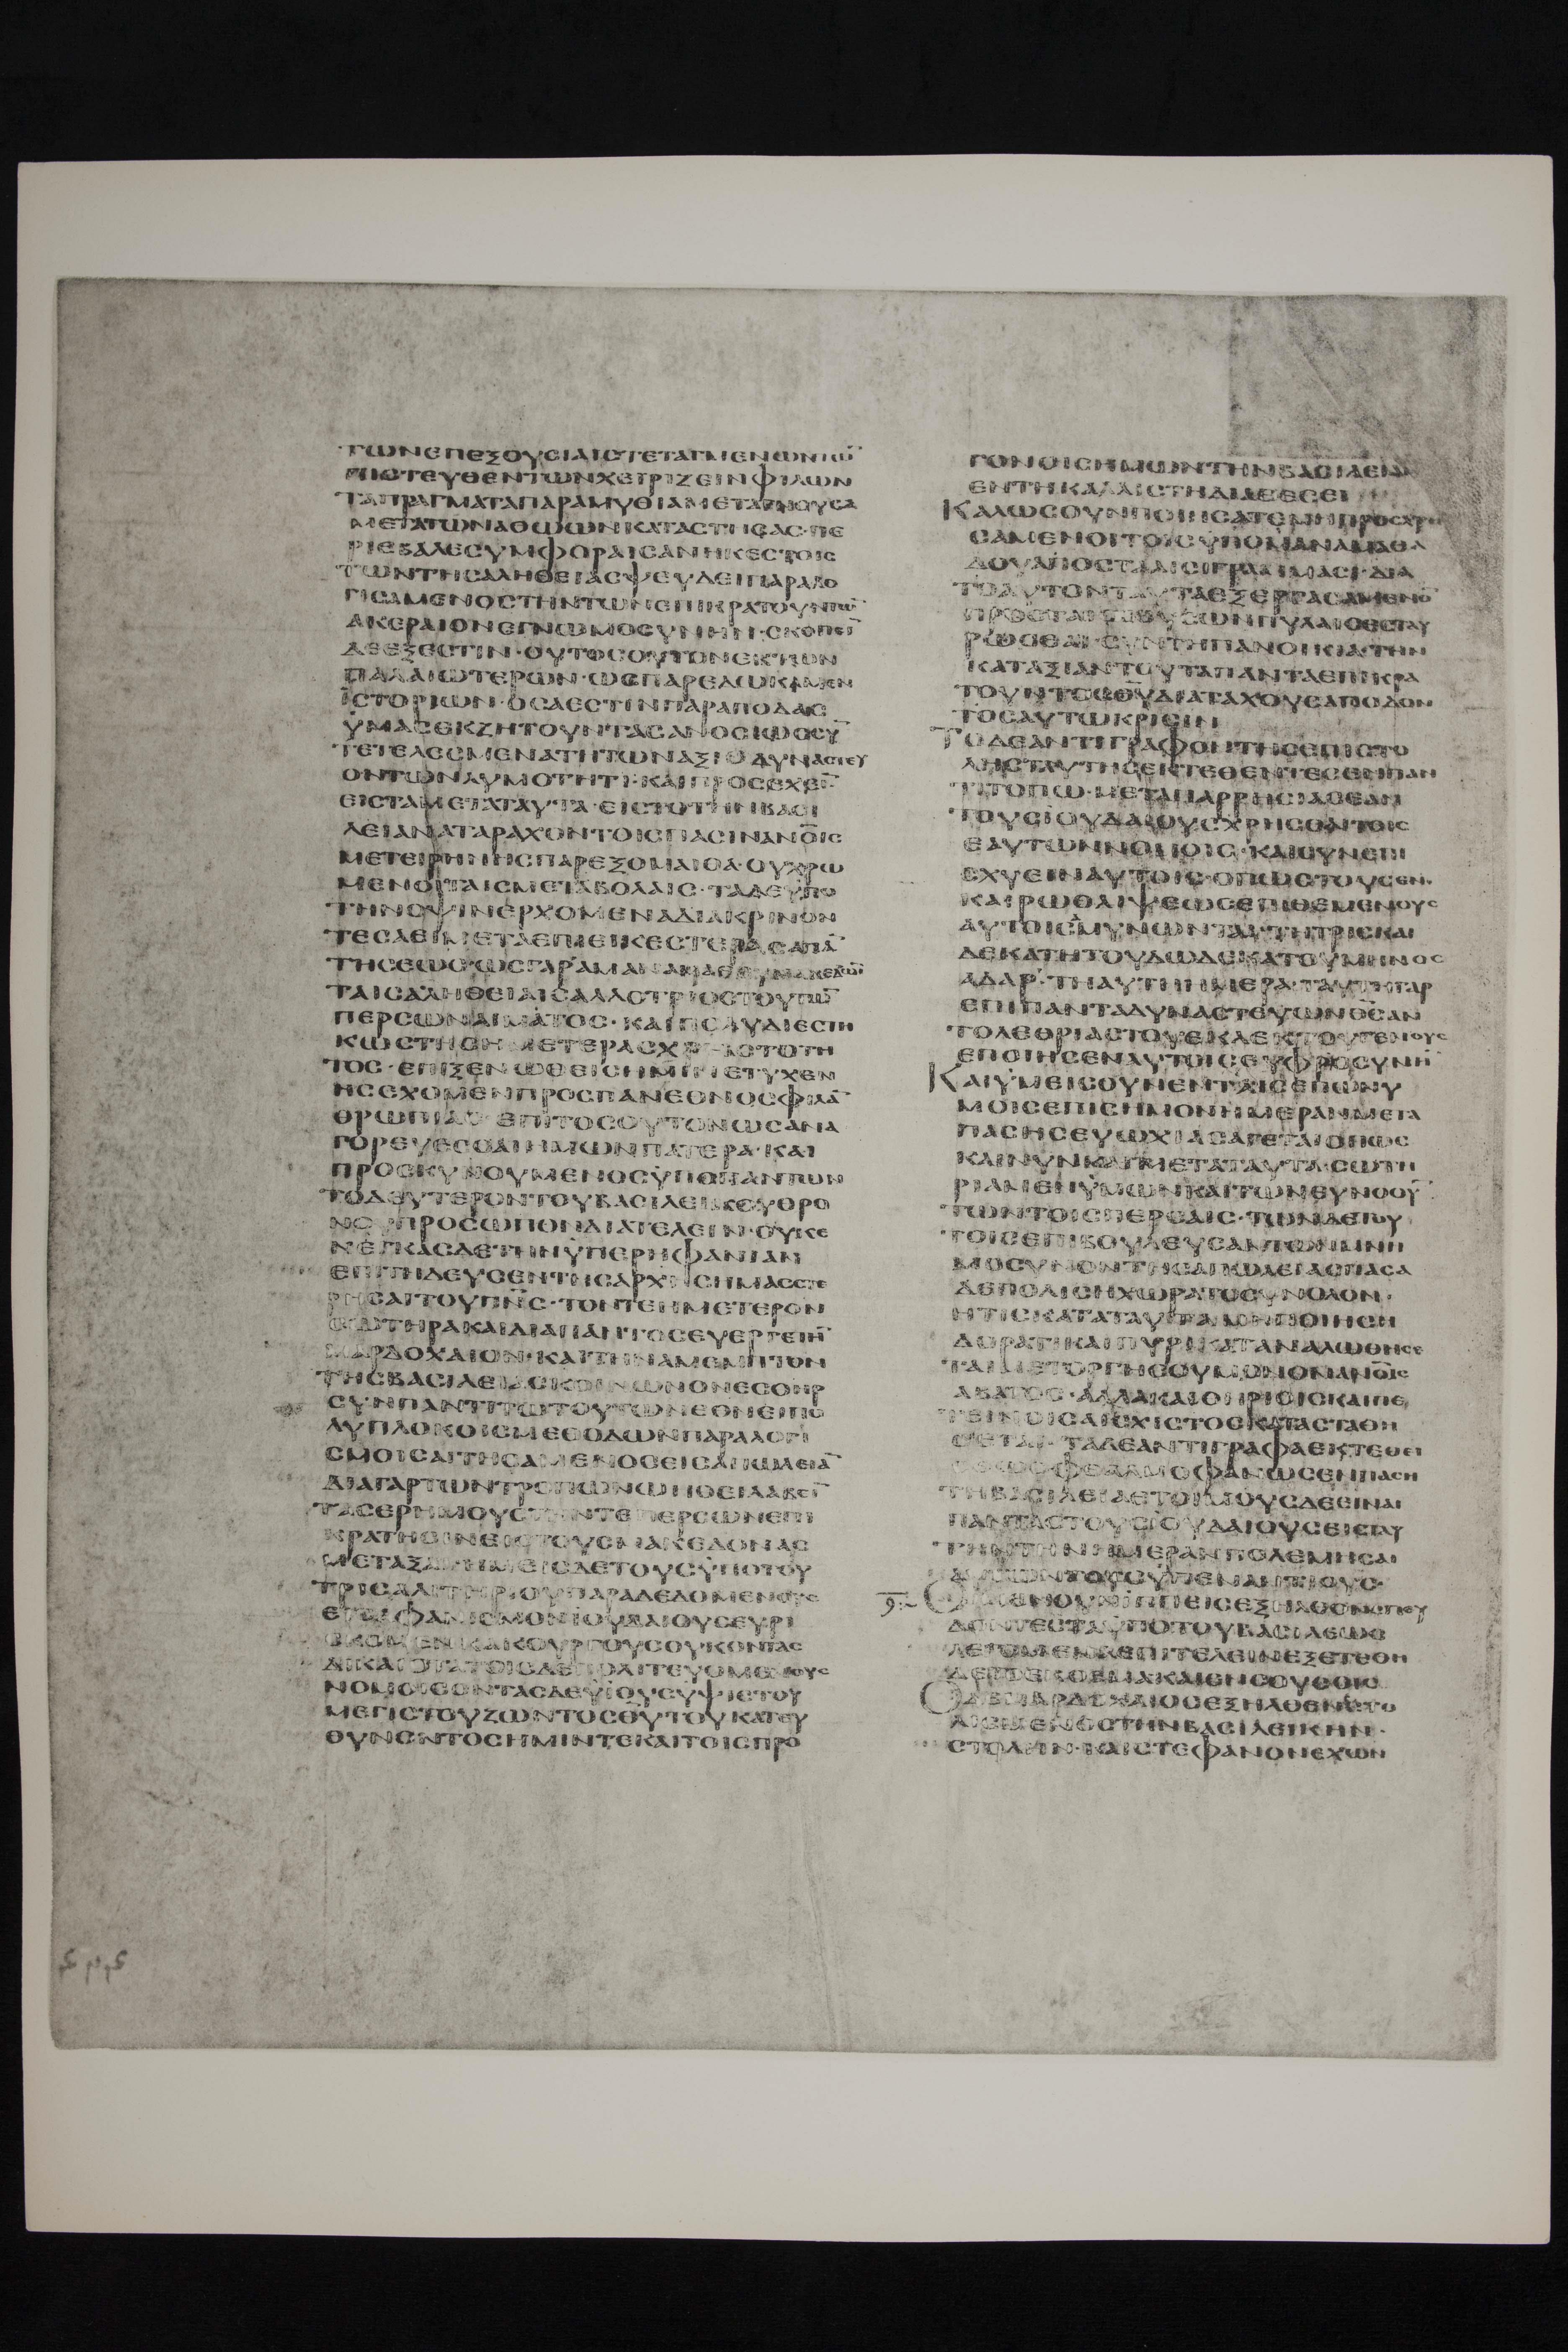 ΤΩΝΕΠΕΞΟΥΣΙΑΙΣΤΕΤΑΓΜΕΝΩΝΤΩ̅
ΠΙΣΤΕΥΘΕΝΤΩΝΧΕΙΡΙΖΕΙΝΦΙΛΩΝ
ΤΑΠΡΑΓΜΑΤΑΠΑΡΑΜΥΘΙΑΜΕΤΑΓΝΟΥΣΑ
ΜΕΤΑΤΩΝΑΘΩΩΝΚΑΤΑΣΤΗΣΑΣ·ΠΕ
ΡΙΕΒΑΛΕΣΥΜΦΟΡΑΙΣΑΝΗΚΕΣΤΟΙΣ
ΤΩΝΤΗΣΑΛΗΘΕΙΑΣΨΕΥΔΕΙΠΑΡΑΛΟ
ΓΙΣΑΜΕΝΟΣΤΗΝΤΩΝΕΠΙΚΡΑΤΟΥΝΤΩ̅
ΑΚΕΡΑΙΟΝΕΓΝΩΜΟΣΥΝΗΝ·ΣΚΟΠΕΙ̅
ΔΕΕΞΕΣΤΙΝ·ΟΥΤΟΣΟΥΤΟΝΕΚΤΩΝ
ΠΑΛΑΙΩΤΕΡΩΝ·ΩΣΠΑΡΕΔΩΚΑΜΕΝ
ΪΣΤΟΡΙΩΝ·ΟΣΑΕΣΤΙΝΠΑΡΑΠΟΔΑΣ
ΫΜΑΣΕΚΖΗΤΟΥΝΤΑΣΑΝΟΣΙΩΣΣΥ̅
ΤΕΤΕΛΕΣΜΕΝΑΤΗΤΩΝΑΞΙΟΔΥΝΑΣΤΕΥ
ΟΝΤΩΝΛΥΜΟΤΗΤΙ·ΚΑΙΠΡΟΣΕΧΕΙ̅
ΕΙΣΤΑΜΕΤΑΤΑΥΤΑ·ΕΙΣΤΟΤΗΝΒΑΣΙ
ΛΕΙΑΝΑΤΑΡΑΧΟΝΤΟΙΣΠΑΣΙΝΑΝΟ̅ΙΣ
ΜΕΤΕΙΡΗΝΗΣΠΑΡΕΞΟΜΑΙΘΑ·ΟΥΧΡΩ
ΜΕΝΟΙΤΑΙΣΜΕΤΑΒΟΛΑΙΣ·ΤΑΔΕΥΠΟ
ΤΗΝΟΨΙΝΕΡΧΟΜΕΝΑΔΙΑΚΡΙΝΟΝ
ΤΕΣΑΕΙΜΕΤΑΕΠΙΕΙΚΕΣΤΕΡΑΣΑΠΑ̅
ΤΑΙΣΑΛΗΘΕΙΑΙΣΑΛΛΟΤΡΙΟΣΤΟΥΤΩ̅
ΠΕΡΣΩΝΑΙΜΑΤΟΣ·ΚΑΙΠΟΛΥΔΙΕΣΤΗ
ΚΩΣΤΗΣΗΜΕΤΕΡΑΣΧΡΗΣΤΟΤΗ
ΤΟΣ·ΕΠΙΞΕΝΩΘΕΙΣΗΜΙΝΕΤΥΧΕΝ
ΗΣΕΧΟΜΕΝΠΡΟΣΠΑΝΕΘΝΟΣΦΙΛΑ̅
ΘΡΩΠΙΑΣ·ΕΠΙΤΟΣΟΥΤΟΝΩΣΑΝΑ
ΓΟΡΕΥΕΣΘΑΙΗΜΩΝΠΑΤΕΡΑ·ΚΑΙ
ΠΡΟΣΚΥΝΟΥΜΕΝΟΣΫΠΟΠΑΝΤΩΝ
ΤΟΔΕΥΤΕΡΟΝΤΟΥΒΑΣΙΛΕΙΚΟΥΘΡΟ
ΝΟΥΠΡΟΣΩΠΟΝΔΙΑΤΕΛΕΙΝ·ΟΥΚΕ
ΝΕΓΚΑΣΔΕΤΗΝΫΠΕΡΗΦΑΝΙΑΝ
ΕΠΙΤΗΔΕΥΣΕΝΤΗΣΑΡΧΗΣΗΜΑΣΣΤΕ
ΡΗΣΑΙΤΟΥΠΝ̅Σ·ΤΟΝΤΕΗΜΕΤΕΡΟΝ
ΣΩΤΗΡΑΚΑΙΔΙΑΠΑΝΤΟΣΕΥΕΡΓΕΤΗ̅
ΜΑΡΔΟΧΑΙΟΝ·ΚΑΙΤΗΝΑΜΕΜΠΤΟΝ
ΤΗΣΒΑΣΙΛΕΙΑΣΚΟΙΝΩΝΟΝΕΣΘΗΡ
ΣΥΝΠΑΝΤΙΤΩΤΟΥΤΩΝΕΘΝΕΙΠΟ
ΛΥΠΛΟΚΟΙΣΜΕΘΟΔΩΝΠΑΡΑΛΟΓΙ
ΣΜΟΙΣΑΙΤΗΣΑΜΕΝΟΣΕΙΣΑΠΩΛΕΙΑ̅
ΔΙΑΓΑΡΤΩΝΤΡΟΠΩΝΩΗΘΕΙΛΑΒΕΙ̅
ΤΑΣΕΡΗΜΟΥΣΤΗΝΤΕΠΕΡΣΩΝΕΠΙ
ΚΡΑΤΗΣΙΝΕΙΣΤΟΥΣΜΑΚΕΔΟΝΑΣ
ΜΕΤΑΞΑΙΗΜΕΙΣΔΕΤΟΥΣΫΠΟΤΟΥ
ΤΡΙΣΑΛΙΤΗΡΙΟΥΠΑΡΑΔΕΔΟΜΕΝΟΥΣ
ΕΙΣΑΦΑΝΙΣΜΟΝΙΟΥΔΑΙΟΥΣΕΥΡΙ
ΣΚΟΜΕΝΟΥΚΑΚΟΥΡΓΟΥΣΟΥΚΟΝΤΑΣ
ΔΙΚΑΙΟΤΑΤΟΙΣΔΕΠΟΛΙΤΕΥΟΜΕΝΟΥΣ
ΝΟΜΟΙΣΟΝΤΑΣΔΕΥΙΟΥΣΥΨΙΣΤΟΥ
ΜΕΓΙΣΤΟΥΖΩΝΤΟΣΘΥ̅ΤΟΥΚΑΤΕΥ
ΘΥΝΟΝΤΟΣΗΜΙΝΤΕΚΑΙΤΟΙΣΠΡΟ
ΓΟΝΟΙΣΗΜΩΝΤΗΝΒΑΣΙΛΕΙΑΝ
ΕΝΤΗΚΑΛΛΙΣΤΗΔΙΑΘΕΣΕΙ
ΚΑΛΩΣΟΥΝΠΟΙΗΣΑΤΕΜΗΠΡΟΣΧΡΗ
ΣΑΜΕΝΟΙΤΟΙΣΥΠΟΑΜΑΝΑΜΑΘΑ
ΔΟΥΑΠΟΣΤΑΛΙΣΙΓΡΑΜΜΑΣΙ·ΔΙΑ
ΤΟΑΥΤΟΝΤΑΥΤΑΕΞΕΡΓΑΣΑΜΕΝΟ̅
ΠΡΟΣΤΑΙΣΣΟΥΣΩΝΠΥΛΑΙΣΕΣΤΑΥ
ΡΩΣΘΑΙ·ΣΥΝΤΗΠΑΝΟΙΚΙΑ·ΤΗΝ
ΚΑΤΑΞΙΑΝΤΟΥΤΑΠΑΝΤΑΕΠΙΚΡΑ
ΤΟΥΝΤΟΣΘΥ̅ΔΙΑΤΑΧΟΥΣΑΠΟΔΟΝ
ΤΟΣΑΥΤΩΚΡΙΣΙΝ
ΤΟΔΕΑΝΤΙΓΡΑΦΟΝΤΗΣΕΠΙΣΤΟ
ΛΗΣΤΑΥΤΗΣΕΚΤΕΘΕΝΤΕΣΕΝΠΑΝ
ΤΙΤΟΠΩ·ΜΕΤΑΠΑΡΡΗΣΙΑΣΕΑΝ
ΤΟΥΣΙΟΥΔΑΙΟΥΣΧΡΗΣΘΑΙΤΟΙΣ
ΕΑΥΤΩΝΝΟΜΟΙΣ·ΚΑΙΣΥΝΕΠΙ
ΣΧΥΕΙΝΑΥΤΟΙΣ·ΟΠΩΣΤΟΥΣΕΝ
ΚΑΙΡΩΘΛΙΨΕΩΣΕΠΙΘΕΜΕΝΟΥΣ
ΑΥΤΟΙΣΑΜΥΝΩΝΤΑΙΤΗΤΡΙΣΚΑΙ
ΔΕΚΑΤΗΤΟΥΔΩΔΕΚΑΤΟΥΜΗΝΟΣ
ΑΔΑΡ·ΤΗΑΥΤΗΗΜΕΡΑ·ΤΑΥΤΗΓΑΡ
ΕΠΙΠΑΝΤΑΔΥΝΑΣΤΕΥΩΝΘ̅ΣΑΝ
ΤΟΛΕΘΡΙΑΣΤΟΥΕΚΛΕΚΤΟΥΓΕΝΟΥΣ
ΕΠΟΙΗΣΕΝΑΥΤΟΙΣΕΥΦΡΟΣΥΝΗ̅
ΚΑΙΫΜΕΙΣΟΥΝΕΝΤΑΙΣΕΠΩΝΥ
ΜΟΙΣΕΠΙΣΗΜΟΝΗΜΕΡΑΝΜΕΤΑ
ΠΑΣΗΣΕΥΩΧΙΑΣΑΓΕΤΑΙΟΠΩΣ
ΚΑΙΝΥΝΚΑΙΜΕΤΑΤΑΥΤΑ·ΣΩΤΗ
ΡΙΑΜΕΝΫΜΩΝΚΑΙΤΩΝΕΥΝΟΟΥ̅
ΤΩΝΤΟΙΣΠΕΡΣΑΙΣ·ΤΩΝΔΕΤΟΥ
ΤΟΙΣΕΠΙΒΟΥΛΕΥΣΑΝΤΩΝΜΝΗ
ΜΟΣΥΝΟΝΤΗΣΑΠΩΛΕΙΑΣΠΑΣΑ
ΔΕΠΟΛΙΣΗΧΩΡΑΤΟΣΥΝΟΛΟΝ·
ΗΤΙΣΚΑΤΑΤΑΥΤΑΜΗΠΟΙΗΣΗ
ΔΟΡΑΤΙΚΑΙΠΥΡΙΚΑΤΑΝΑΛΩΘΗΣΕ
ΤΑΙΜΕΤΟΡΓΗΣΟΥΜΟΝΟΝΑΝΟ̅ΙΣ
ΑΒΑΤΟΣ·ΑΛΛΑΚΑΙΘΗΡΙΟΙΣΚΑΙΠΕ
ΤΕΙΝΟΙΣΑΙΣΧΙΣΤΟΣΚΑΤΑΣΤΑΘΗ
ΣΕΤΑΙ·ΤΑΔΕΑΝΤΙΓΡΑΦΑΕΚΤΕΘΕΙ
ΣΘΩΣΟΦΘΑΛΜΟΦΑΝΩΣΕΝΠΑΣΗ
ΤΗΒΑΣΙΛΕΙΑΕΤΟΙΜΟΥΣΔΕΕΙΝΑΙ
ΠΑΝΤΑΣΤΟΥΣΙΟΥΔΑΙΟΥΣΕΙΣΤΑΥ
ΤΗΝΤΗΝΗΜΕΡΑΝΠΟΛΕΜΗΣΑΙ
ΑΥΤΩΝΤΟΥΣΫΠΕΝΑΝΤΙΟΥΣ·
ΟΙΜΕΝΟΥΝΙΠΠΕΙΣΕΞΗΛΘΟΝΣΠΕΥ
ΔΟΝΤΕΣΤΑΫΠΟΤΟΥΒΑΣΙΛΕΩΣ
ΛΕΓΟΜΕΝΑΕΠΙΤΕΛΕΙΝΕΞΕΤΕΘΗ
ΟΔΕΜΑΡΔΟΧΑΙΟΣΕΞΗΛΘΕΝΕΣΤΟ
ΛΙΣΜΕΝΟΣΤΗΝΒΑΣΙΛΕΙΚΗΝ·
ΣΤΟΛΗΝ·ΚΑΙΣΤΕΦΑΝΟΝΕΧΩΝ